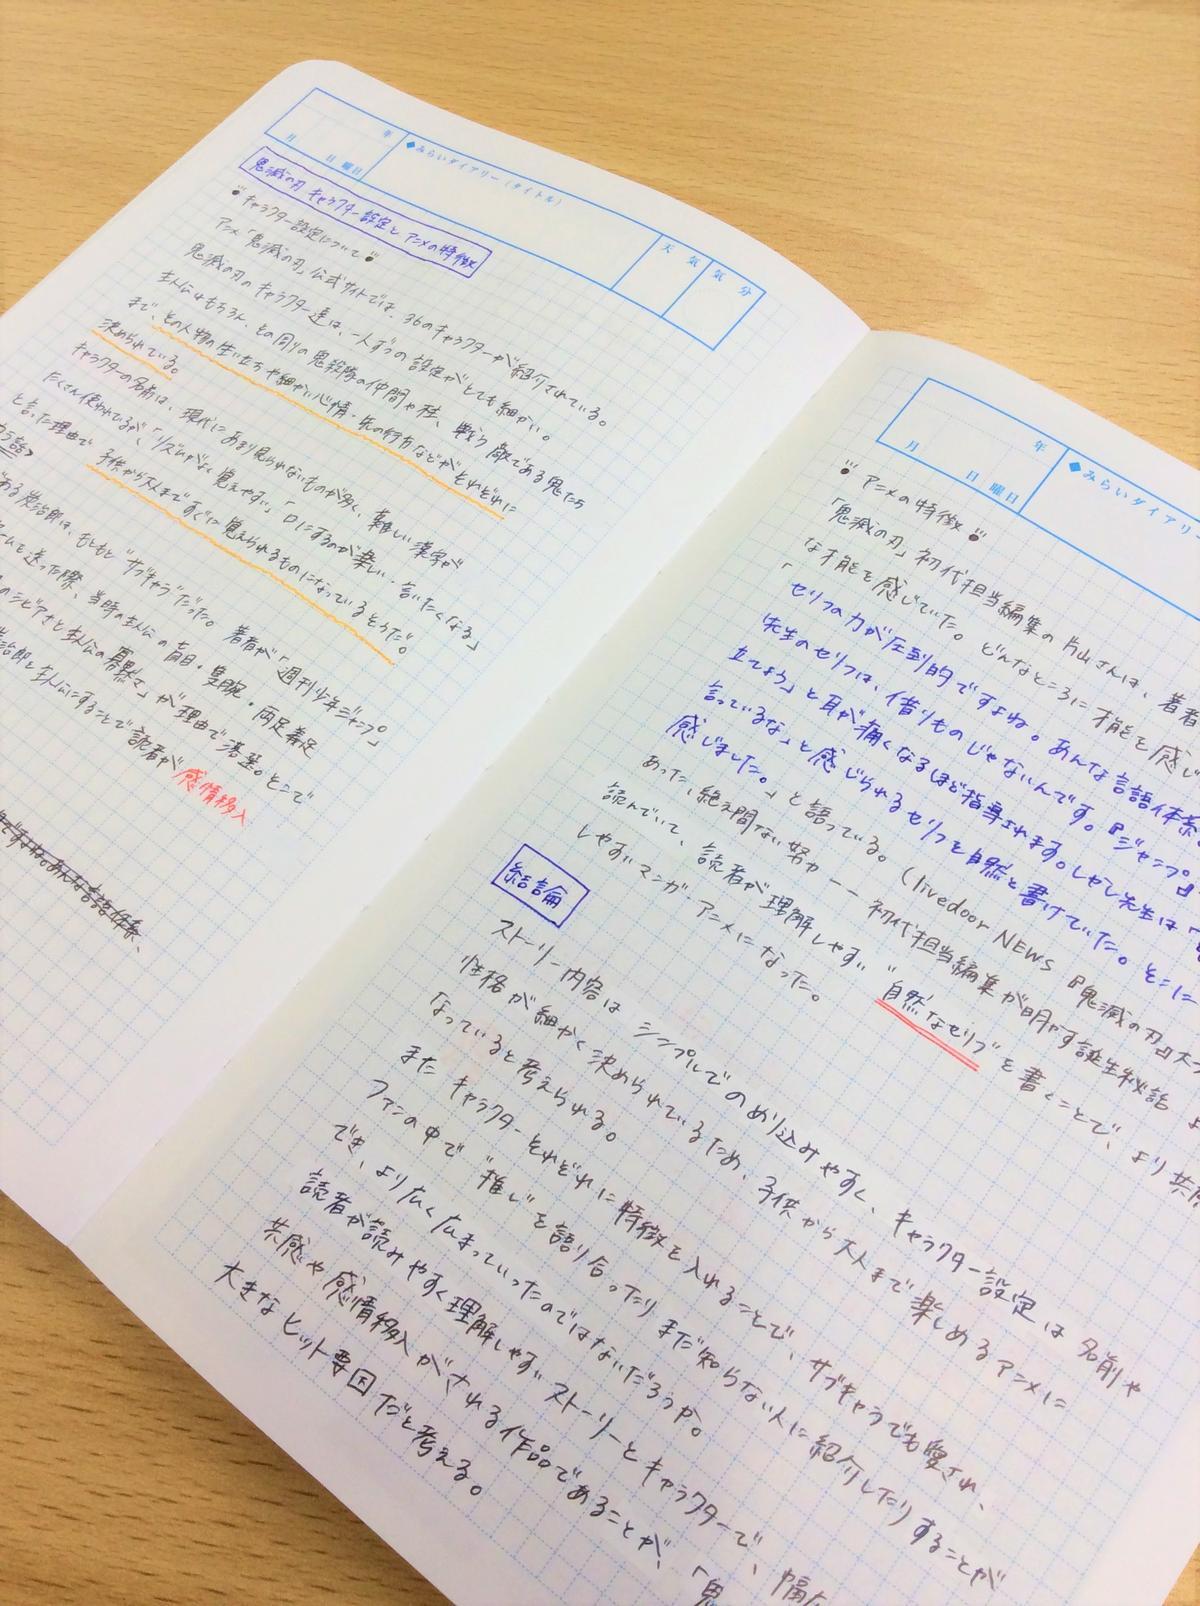 年
月 日 曜日
◆みらいダイアリー(タイトル)
天気
気分
鬼滅の刃 キャラクター設定と アニメの特徴
キャラクター設定について
アニメ「鬼滅の刃」公式サイトでは、36のキャラクターが紹介されている。
鬼滅の刃のキャラクター達は、一人ずつの設定がとても細かい。
主人公はもちろん、その周りの鬼殺隊の仲間や柱、戦う敵である鬼たち
まで、その人物の生い立ちや細かい心情・先の行方などがそれぞれに
決められている。
キャラクターの名前は、現代にあまり見られないものが多く、難しい漢字が
たくさん使われているが、「リズムがよく覚えやすい」「口にするのが楽しい・言いたくなる」
と言った理由で 子供から大人まですぐに覚えられるものになっているそうだ。
ある炭治郎は、もともと"サブキャラ"だった。著者が「週刊少年ジャンプ」
を送った際、当時の主人公の盲目・隻腕・両足義足
のシビアさと主人公の寡黙さ」が理由で落選。そこで
治郎を主人公にすることで読者が 感情移入
ですよね。あんな言語体系、
年
月 日 曜日
◆みらいダイアリー
アニメの特徴
「鬼滅の刃」初代担当編集の片山さんは、著者
な才能を感じていた。どんなところに才能を感じ
「セリフの力が圧倒的ですよね。あんな言語体系
先生のセリフは、借りものじゃないんです。『ジャンプ』
立てよう」と耳が痛くなるほど指導されます。しかし先生は「
言っているな」と感じられるセリフを自然と書けていた。そこに
感じました。」と語っている。(livedoor NEWS『鬼滅の刃』大
あった、絶え間ない努力ーー初代担当編集が明かす誕生秘話 よ
読んでいて、読者が理解しやすい"自然なセリフ"を書くことで、より共
しやすいマンガ・アニメになった。
結論
ストーリー内容は シンプルでのめり込みやすく、キャラクター設定は名前や
性格が細かく決められているため、子供から大人まで楽しめるアニメに
なっていると考えられる。
また キャラクターそれぞれに特徴を入れることで、サブキャラでも愛され、
ファンの中で "推し"を語り合ったり まだ知らない人に紹介したりすることが
でき、より広く広まっていったのではないだろうか。
読者が読みやすく理解しやすいストーリーとキャラクターで、幅広
共感や感情移入がされる作品であることが、「鬼
大きなヒット要因だと考える。